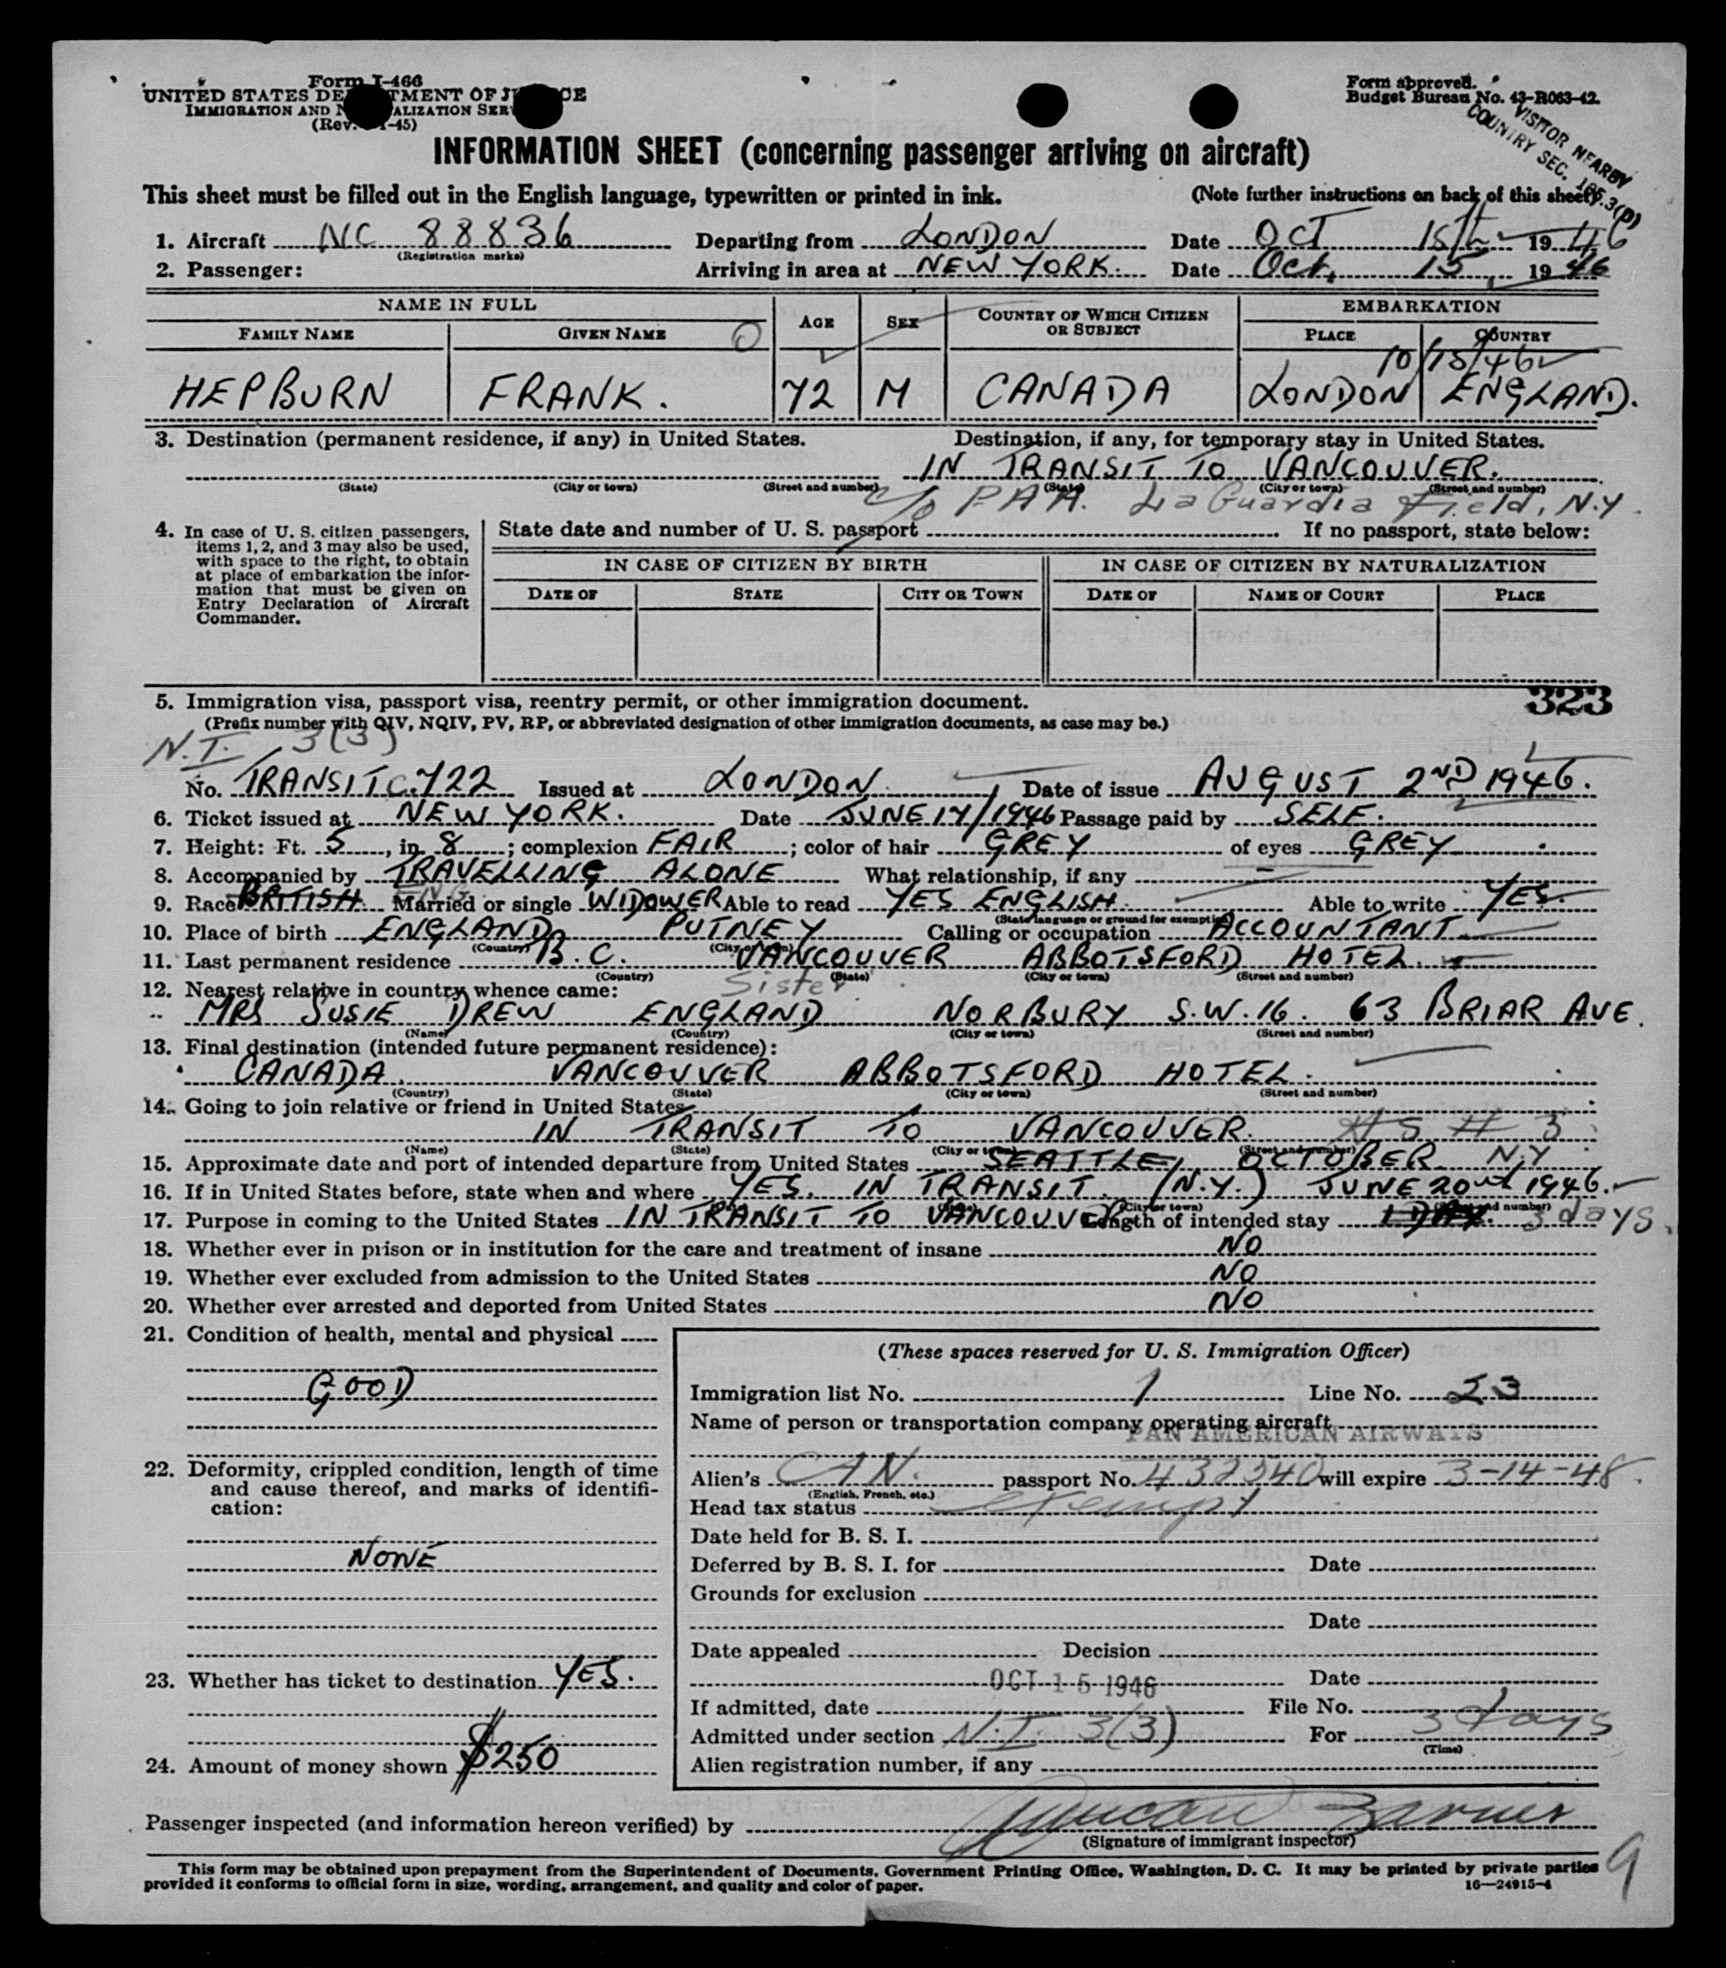 Form I-466
UNITED STATES DE TMENT OF J CE
IMMIGRATION AND N ALIZATION SER
(Rev. 1-45)
Form approved.
Budget Bureau No. 43-R063-42.
VISITOR NEARBY
COUNTRY SEC. 165.3(D)
INFORMATION SHEET (concerning passenger arriving on aircraft)
This sheet must be filled out in the English language, typewritten or printed in ink. (Note further instructions on back of this sheet)
1. Aircraft NC 88836 Departing from LONDON Date OCT 15th 1946
(Registration marks)
2. Passenger: Arriving in area at NEW YORK. Date Oct. 15, 1946
NAME IN FULL AGE SEX COUNTRY OF WHICH CITIZEN OR SUBJECT EMBARKATION
FAMILY NAME GIVEN NAME O PLACE COUNTRY
10/15/46
HEPBURN FRANK. 72 M CANADA LONDON ENGLAND.
3. Destination (permanent residence, if any) in United States. Destination, if any, for temporary stay in United States.
IN TRANSIT TO VANCOUVER.
(State) (City or town) (Street and number) (State) (City or town) (Street and number)
c/o P.A.A. La Guardia Field, N.Y.
4. In case of U. S. citizen passengers, items 1, 2, and 3 may also be used, with space to the right, to obtain at place of embarkation the information that must be given on Entry Declaration of Aircraft Commander.
State date and number of U. S. passport If no passport, state below:
IN CASE OF CITIZEN BY BIRTH IN CASE OF CITIZEN BY NATURALIZATION
DATE OF STATE CITY OR TOWN DATE OF NAME OF COURT PLACE
5. Immigration visa, passport visa, reentry permit, or other immigration document. 323
(Prefix number with QIV, NQIV, PV, RP, or abbreviated designation of other immigration documents, as case may be.)
N.I. 3(3)
No. TRANSIT C.722 Issued at LONDON Date of issue AUGUST 2ND 1946.
6. Ticket issued at NEW YORK. Date JUNE 17/1946 Passage paid by SELF.
7. Height: Ft. 5, in 8; complexion FAIR; color of hair GREY of eyes GREY
8. Accompanied by TRAVELLING ALONE What relationship, if any -
9. Race BRITISH ENG Married or single WIDOWER Able to read YES ENGLISH Able to write YES.
(State language or ground for exemption)
10. Place of birth ENGLAND PUTNEY Calling or occupation ACCOUNTANT
(Country) (City or town)
11. Last permanent residence B.C. VANCOUVER ABBOTSFORD HOTEL.
(Country) (State) (City or town) (Street and number)
12. Nearest relative in country whence came: Sister
MRS SUSIE DREW ENGLAND NORBURY S.W.16. 63 BRIAR AVE.
(Name) (Country) (City or town) (Street and number)
13. Final destination (intended future permanent residence):
CANADA. VANCOUVER ABBOTSFORD HOTEL.
(Country) (State) (City or town) (Street and number)
14. Going to join relative or friend in United States
IN TRANSIT TO VANCOUVER.
(Name) (State) (City or town) (Street and number)
15. Approximate date and port of intended departure from United States SEATTLE, OCTOBER N.Y
16. If in United States before, state when and where YES. IN TRANSIT. (N.Y.) JUNE 20 1946.
(City or town) (Street and number)
17. Purpose in coming to the United States IN TRANSIT TO VANCOUVER Length of intended stay 1 DAY. 3 days.
18. Whether ever in prison or in institution for the care and treatment of insane NO
19. Whether ever excluded from admission to the United States NO
20. Whether ever arrested and deported from United States NO
21. Condition of health, mental and physical
GOOD
22. Deformity, crippled condition, length of time and cause thereof, and marks of identification:
NONE
23. Whether has ticket to destination YES.
24. Amount of money shown $250
(These spaces reserved for U. S. Immigration Officer)
Immigration list No. 1 Line No. 23
Name of person or transportation company operating aircraft
PAN AMERICAN AIRWAYS
Alien's CAN. passport No. 432240 will expire 3-14-48.
(English, French, etc.)
Head tax status exempt
Date held for B. S. I.
Deferred by B. S. I. for Date
Grounds for exclusion
Date
Date appealed Decision
OCT 15 1946 Date
If admitted, date File No.
Admitted under section N.I. 3(3) For 3 days
(Time)
Alien registration number, if any
Passenger inspected (and information hereon verified) by
(Signature of immigrant inspector)
This form may be obtained upon prepayment from the Superintendent of Documents, Government Printing Office, Washington, D. C. It may be printed by private parties
provided it conforms to official form in size, wording, arrangement, and quality and color of paper. 16—24915-4
9